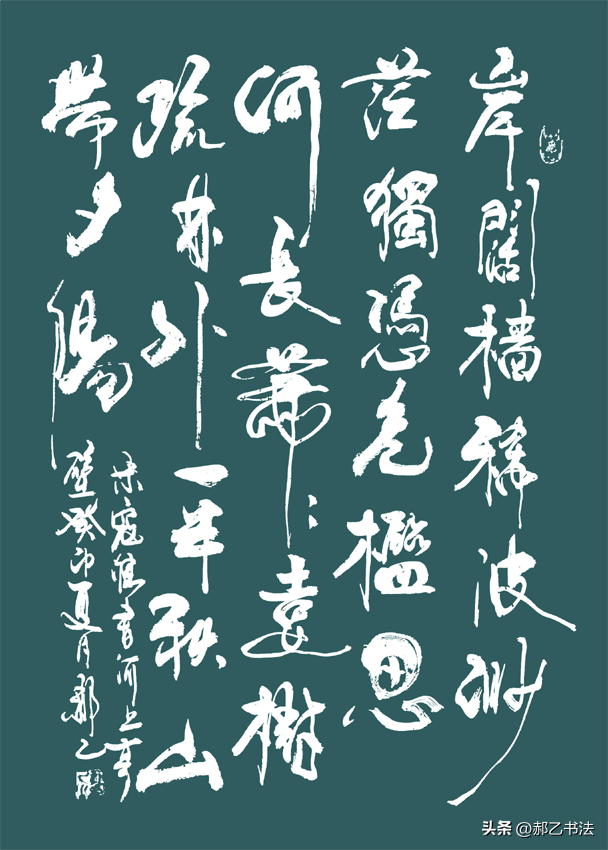 岸闊檣稀波渺
茫獨憑危檻思
何長蕭〻遠樹
疏林外一半秋山
帶夕陽
宋寇準書河上亭
壁癸卯夏月郝乙
头条 @郝乙书法